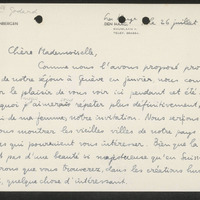 NBERGEN
DEN HAAG
le 26 juillet
Chère Mademoiselle,
Comme nous l'avons proposé
de notre séjour à Genève en janvier, nous
le plaisir de vous voir ici pendant cet été
quoi j'aimerais répéter plus définitivement,
de ma femme, notre invitation. Nous
vous montrer les vieilles villes de notre pays
qui pourraient vous intéresser. Bien que la
pas d'une beauté si majestueuse qu'en Suisse
que vous trouverez, dans les créations
quelque chose d'intéressant.